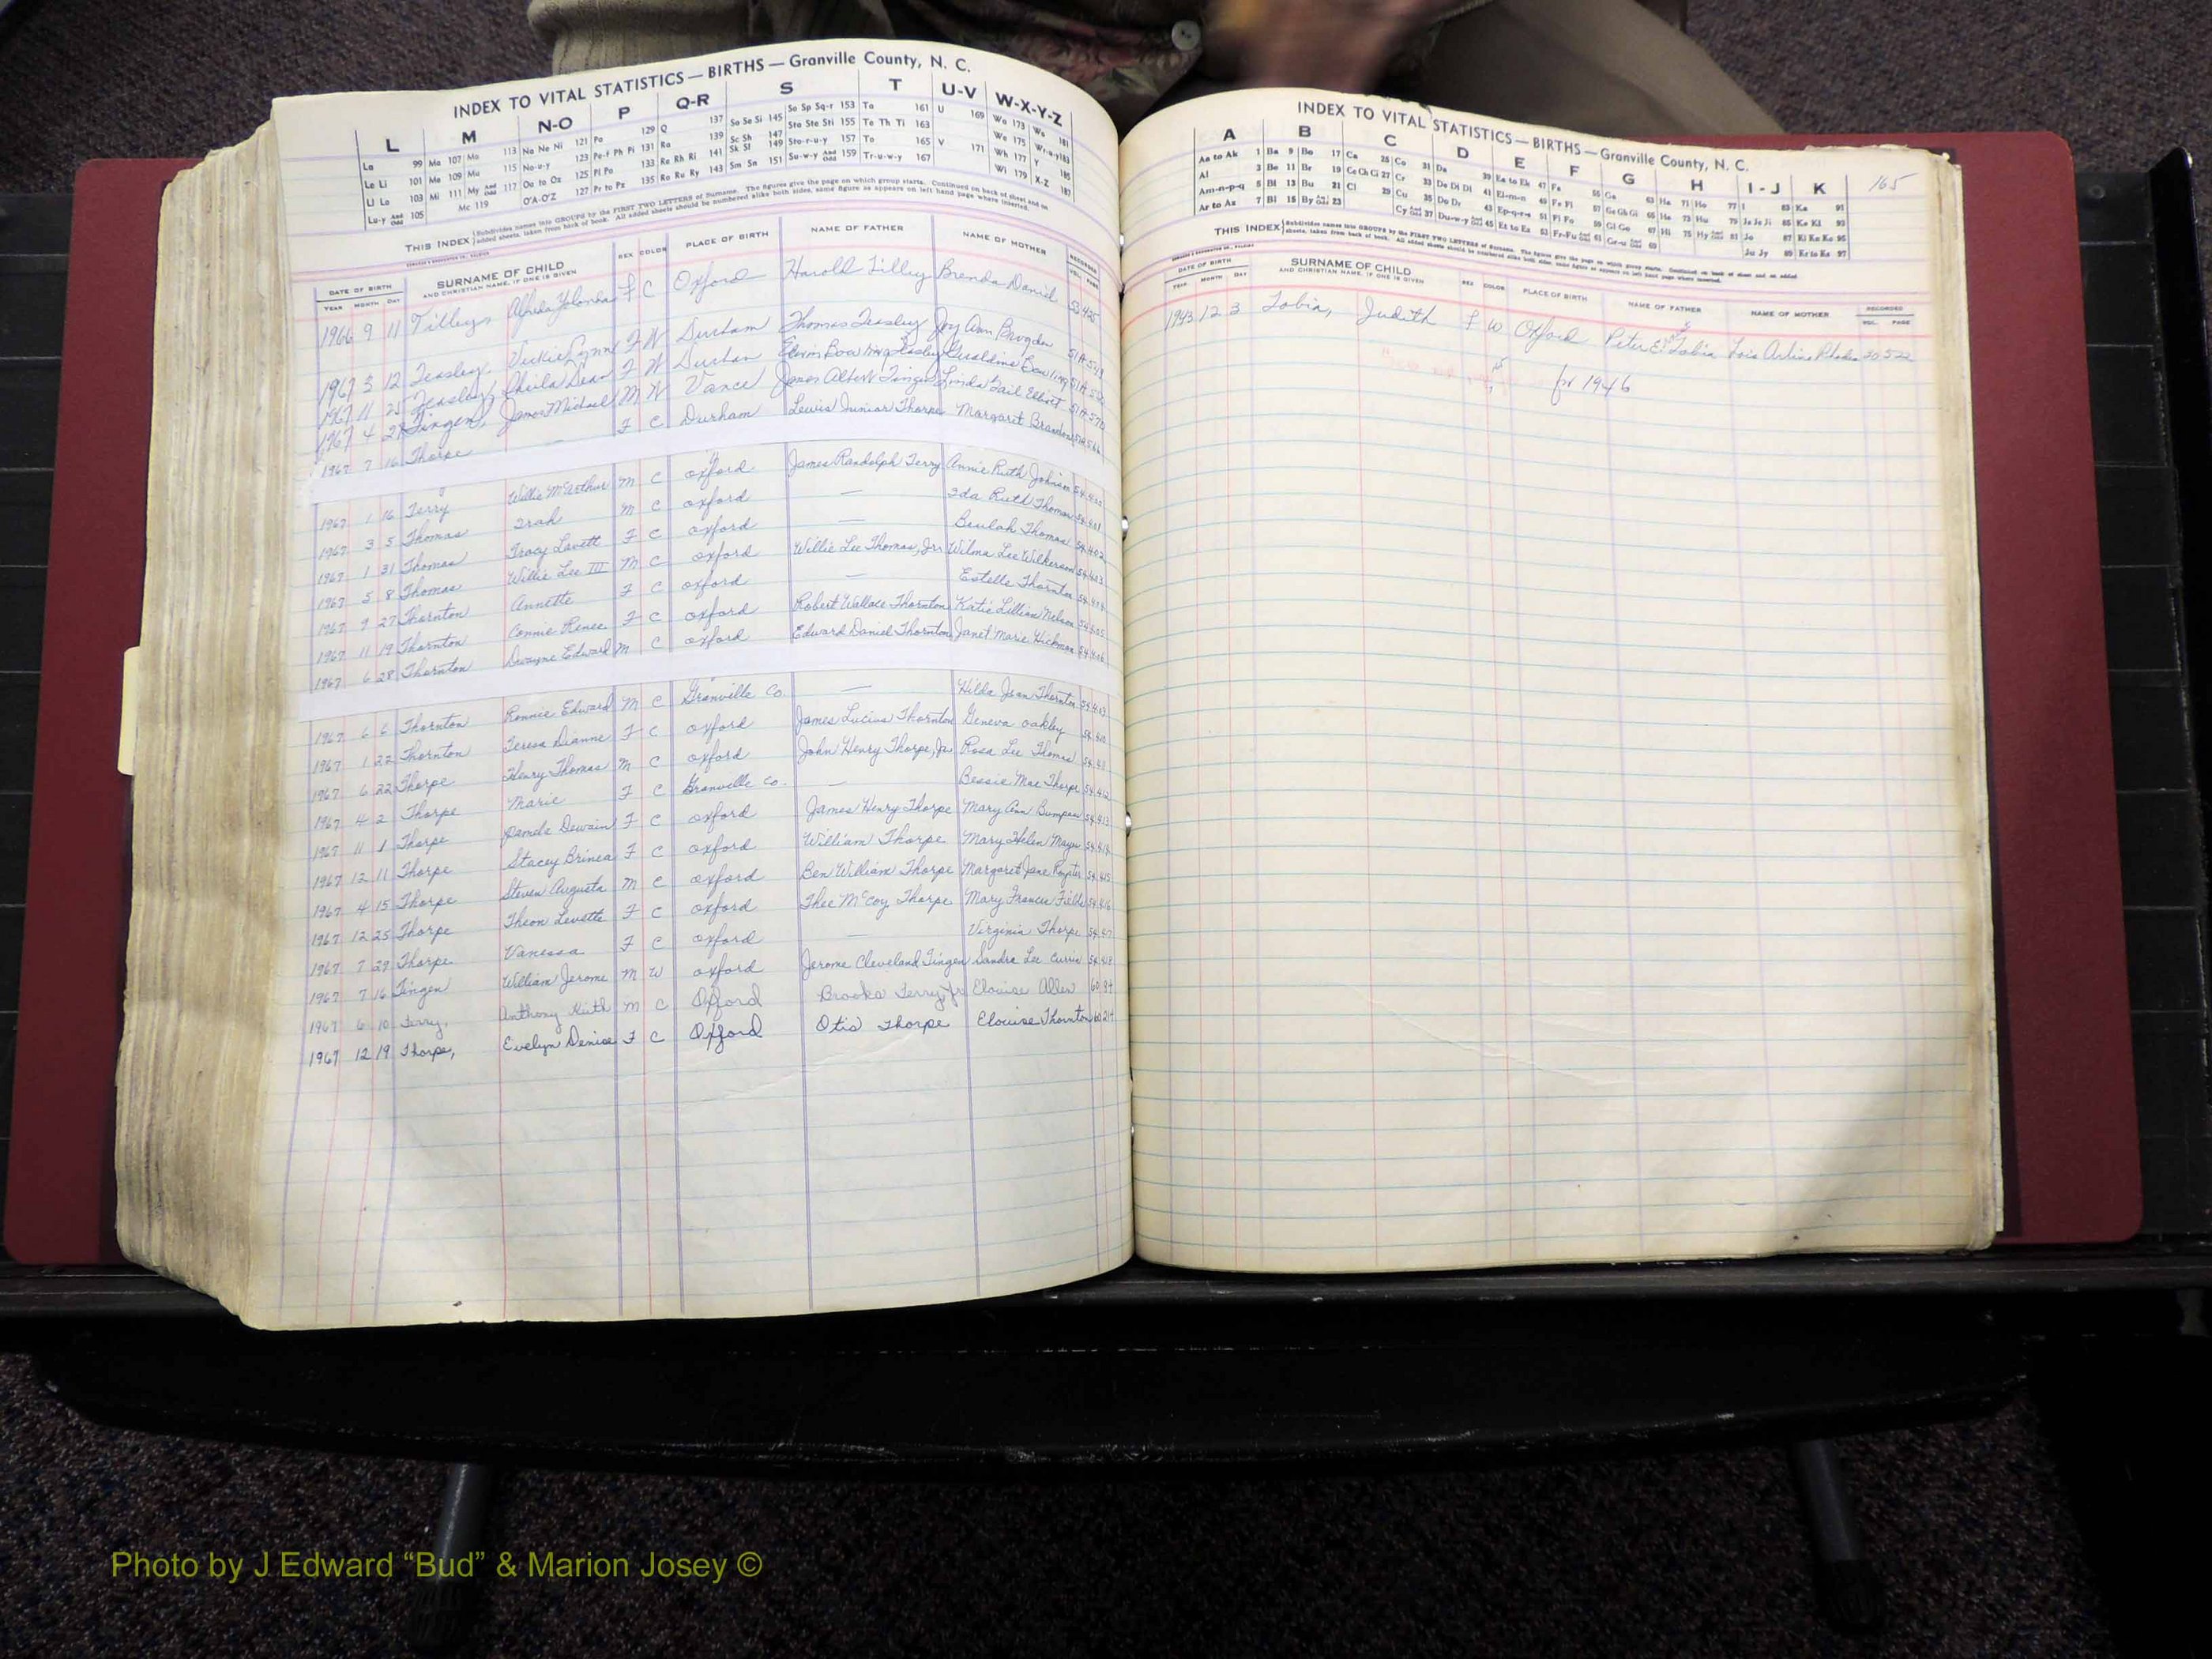 INDEX TO VITAL STATISTICS — BIRTHS — Granville County, N. C.
L M N-O P Q-R S T U-V W-X-Y-Z
La 99 Ma 107 Mo 113 Na Ne Ni 121 Pa 129 Q 137 Sa Se Si 145 So Sp Sq-r 153 Ta 161 U 169 Wa 173 Wo 181
Le Li 101 Me 109 Mu 115 No-u-y 123 Pe-f Ph Pi 131 Ra 139 Sc Sh 147 Sta Ste Sti 155 Te Th Ti 163 We 175 Wr-u-y 183
Ll Lo 103 Mi 111 My And Odd 117 Oa to Oz 125 Pl Po 133 Re Rh Ri 141 Sk Sl 149 Sto-r-u-y 157 To 165 V 171 Wh 177 Y 185
Lu-y And Odd 105 Mc 119 O'A-O'Z 127 Pr to Pz 135 Ro Ru Ry 143 Sm Sn 151 Su-w-y And Odd 159 Tr-u-w-y 167 Wi 179 X-Z 187
THIS INDEX Subdivides names into GROUPS by the FIRST TWO LETTERS of Surname. The figures give the page on which group starts. Continued on back of sheet and on
added sheets, taken from back of book. All added sheets should be numbered alike both sides, same figure as appears on left hand page where inserted.
DATE OF BIRTH SURNAME OF CHILD SEX COLOR PLACE OF BIRTH NAME OF FATHER NAME OF MOTHER RECORDED
YEAR MONTH DAY AND CHRISTIAN NAME, IF ONE IS GIVEN VOL. PAGE
1966 9 11 Tilley, Alfreda Yolonda F C Oxford Harold Tilley Brenda Daniel 53 425
1967 3 12 Teasley, Vickie Lynne F W Durham Thomas Teasley Joy Ann Brogdon
1967 11 25 Teasley, Sheila Dean F W Durham Elvin Bowling Teasley Geraldine Bowling
1967 4 27 Tingen, James Michael M W Vance James Albert Tingen Linda Gail Elliott 51A 570
1967 7 16 Thorpe — F C Durham Lewis Junior Thorpe Margaret Brandon
1967 1 16 Terry Willie McArthur M C Oxford James Randolph Terry Annie Ruth Johnson
1967 3 5 Thomas M C Oxford — Ida Ruth Thomas 54 401
1967 1 31 Thomas Tracy Lavett F C Oxford — Beulah Thomas 54 402
1967 5 8 Thomas Willie Lee III M C Oxford Willie Lee Thomas, Jr. Wilma Lee Wilkerson 54 403
1967 9 27 Thornton Annette F C Oxford — Estelle Thornton 54 404
1967 11 19 Thornton Connie Renee F C Oxford Robert Wallace Thornton Katie Lillian Nelson 54 405
1967 6 28 Thornton Dwayne Edward M C Oxford Edward Daniel Thornton Janet Marie Hickman 54 406
1967 6 6 Thornton Ronnie Edward M C Granville Co. — Hilda Jean Thornton
1967 1 22 Thornton Teresa Dianne F C Oxford James Lucius Thornton Geneva Oakley
1967 6 22 Thorpe Henry Thomas M C Oxford John Henry Thorpe, Jr. Rosa Lee Thomas
1967 4 2 Thorpe Marie F C Granville Co. — Bessie Mae Thorpe 54 412
1967 11 1 Thorpe Pamela Dewain F C Oxford James Henry Thorpe Mary Ann Bumpass 54 413
1967 12 11 Thorpe Stacey Brinea F C Oxford William Thorpe Mary Helen Mayo 54 414
1967 4 15 Thorpe Steven Augusta M C Oxford Ben William Thorpe Margaret Jane Royster 54 415
1967 12 25 Thorpe Theon Levette F C Oxford Thee McCoy Thorpe Mary Frances Fields 54 416
1967 7 29 Thorpe Vanessa F C Oxford — Virginia Thorpe 54 417
1967 7 16 Tingen William Jerome M W Oxford Jerome Cleveland Tingen Sandra Lee Currin 54 418
1967 6 10 Terry, Anthony Keith M C Oxford Brooks Terry, Jr. Elouise Allen 60 94
1967 12 19 Thorpe, Evelyn Denise F C Oxford Otis Thorpe Elouise Thornton
INDEX TO VITAL STATISTICS — BIRTHS — Granville County, N. C.
A B C D E F G H I - J K 165
Aa to Ak 1 Ba 9 Bo 17 Ca 25 Co 31 Da 39 Ea to Ek 47 Fa 55 Ga 63 Ha 71 Ho 77 I 83 Ka 91
Al 3 Be 11 Br 19 Ce Ch Ci 27 Cr 33 De Di Dl 41 El-m-n 49 Fe Fi 57 Ge Gh Gi 65 He 73 Hu 79 Ja Je Ji 85 Ke Kl 93
Am-n-p-q 5 Bl 13 Bu 21 Cl 29 Cu 35 Do Dr 43 Ep-q-r-s 51 Fl Fo 59 Gl Go 67 Hi 75 Hy And Odd 81 Jo 87 Ki Kn Ko 95
Ar to Az 7 Bi 15 By And Odd 23 Cy And Odd 37 Du-w-y And Odd 45 Et to Ez 53 Fr-Fu And Odd 61 Gr-u And Odd 69 Ju Jy 89 Kr to Kz 97
THIS INDEX Subdivides names into GROUPS by the FIRST TWO LETTERS of Surname. The figures give the page on which group starts. Continued on back of sheet and on added
sheets, taken from back of book. All added sheets should be numbered alike both sides, same figure as appears on left hand page where inserted.
DATE OF BIRTH SURNAME OF CHILD SEX COLOR PLACE OF BIRTH NAME OF FATHER NAME OF MOTHER RECORDED
YEAR MONTH DAY AND CHRISTIAN NAME, IF ONE IS GIVEN VOL. PAGE
1943 12 3 Tobia, Judith F W Oxford Peter E. Tobia Lois Arline Rhodes 30 522
for 1946
Photo by J Edward “Bud” & Marion Josey ©